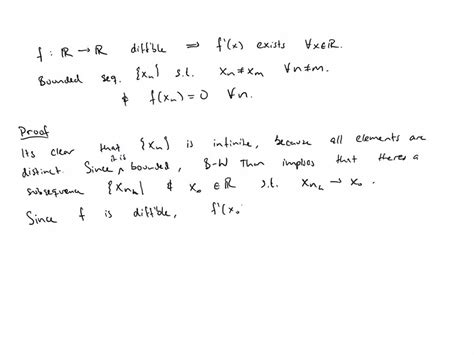 f : ℝ → ℝ diff'ble ⇒ f'(x) exists ∀x∈ℝ.
Bounded seq. {xₙ} s.t. xₙ ≠ xₘ ∀n≠m.
& f(xₙ) = 0 ∀n.
Proof
Its clear that {xₙ} is infinite, because all elements are
distinct. Since it is bounded, B-W Thm implies that there's a
subsequence {xₙₖ} & x₀ ∈ ℝ s.t. xₙₖ → x₀.
Since f is diff'ble, f'(x₀